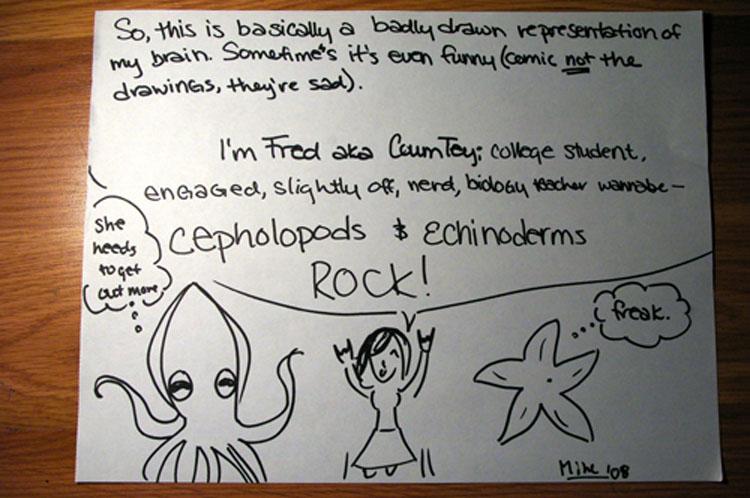 So, this is basically a badly drawn representation of
my brain. Sometimes it's even funny (comic not the
drawings, they're sad).
I'm Fred aka CoumTey: college student,
engaged, slightly off, nerd, biology teacher wannabe –
cepholopods & Echinoderms
ROCK!
She
needs
to get
out more
freak.
'08